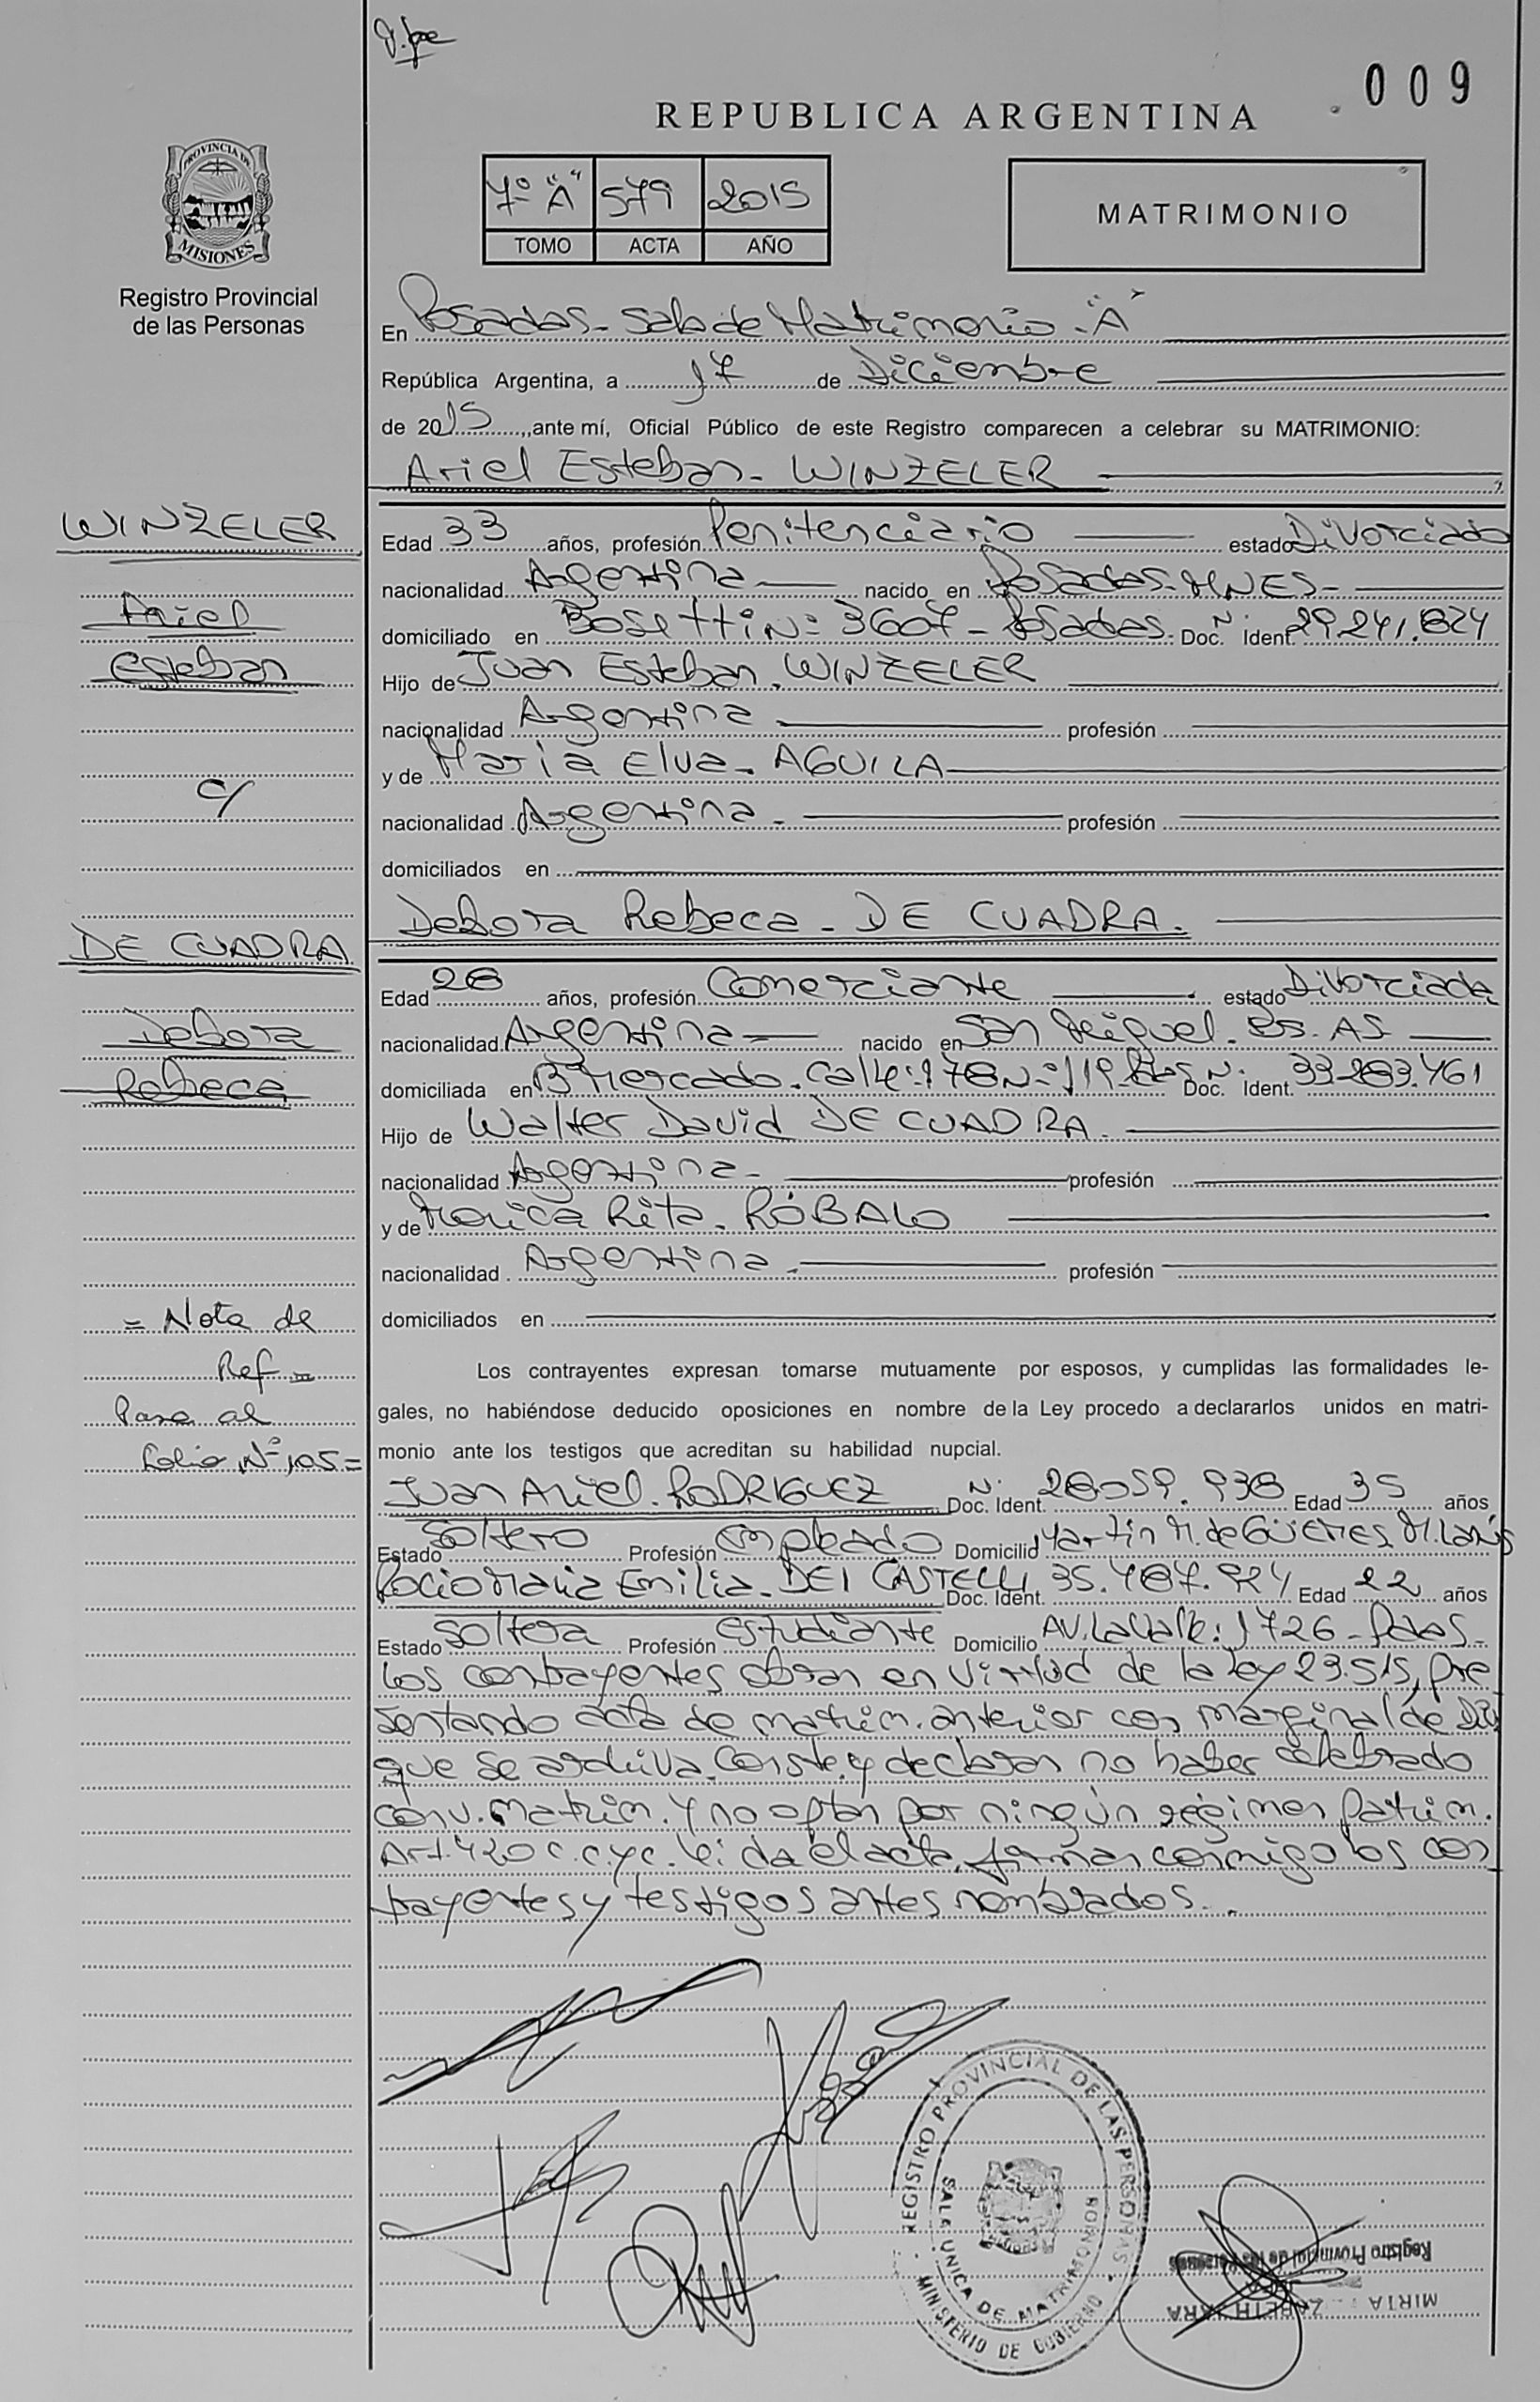 009
REPUBLICA ARGENTINA
PROVINCIA DE
MISIONES
Registro Provincial
de las Personas
7º "A" 579 2015
TOMO ACTA AÑO
MATRIMONIO
En Posadas - Sala de Matrimonio - "A"
República Argentina, a 17 de Diciembre
de 2015, ante mí, Oficial Público de este Registro comparecen a celebrar su MATRIMONIO:
Ariel Esteban - WINZELER
WINZELER
Ariel
Esteban
c/
DE CUADRA
Debora
Rebeca
= Nota de
Ref =
Pasa al
folio Nº 105 =
Edad 33 años, profesión Penitenciario estado Divorciado
nacionalidad Argentina nacido en Posadas - MNES -
domiciliado en Bosetti Nº 3607 - Posadas - Doc. Ident. Nº 29.241.824
Hijo de Juan Esteban - WINZELER
nacionalidad Argentina profesión
y de María Elva - AGUILA
nacionalidad Argentina - profesión
domiciliados en
Debora Rebeca - DE CUADRA.
Edad 28 años, profesión Comerciante estado Divorciada
nacionalidad Argentina nacido en San Miguel - Bs. AS
domiciliada en Bº Mercado - Calle: 178 Nº 119 Doc. Ident. Nº 33.283.461
Hijo de Walter David DE CUADRA.
nacionalidad Argentina - profesión
y de Monica Rita - RÓBALO
nacionalidad Argentina - profesión
domiciliados en
Los contrayentes expresan tomarse mutuamente por esposos, y cumplidas las formalidades le-
gales, no habiéndose deducido oposiciones en nombre de la Ley procedo a declararlos unidos en matri-
monio ante los testigos que acreditan su habilidad nupcial.
Juan Ariel - RODRIGUEZ Doc. Ident. Nº 28.059.938 Edad 35 años
Estado Soltero Profesión Empleado Domicilio Martin M. de Güemes
Rocio Maria Emilia - DEI CASTELLI Doc. Ident. 35.487.924 Edad 22 años
Estado Soltera Profesión Estudiante Domicilio AV. Lavalle: 1726 - Pdas -
Los contrayentes obran en virtud de la ley 23.515, pre
sentando acta de matrim. anterior con marginal de Div
que se archiva. Conste. y declaran no haber celebrado
conv. matrim. y no optan por ningún régimen patrim.
Art. 420 C.C. y C. Leida el acta, firman conmigo los con
trayentes y testigos antes nombrados.
REGISTRO PROVINCIAL DE LAS PERSONAS
SALA UNICA DE MATRIMONIOS
MINISTERIO DE GOBIERNO
Registro Provincial de las Personas